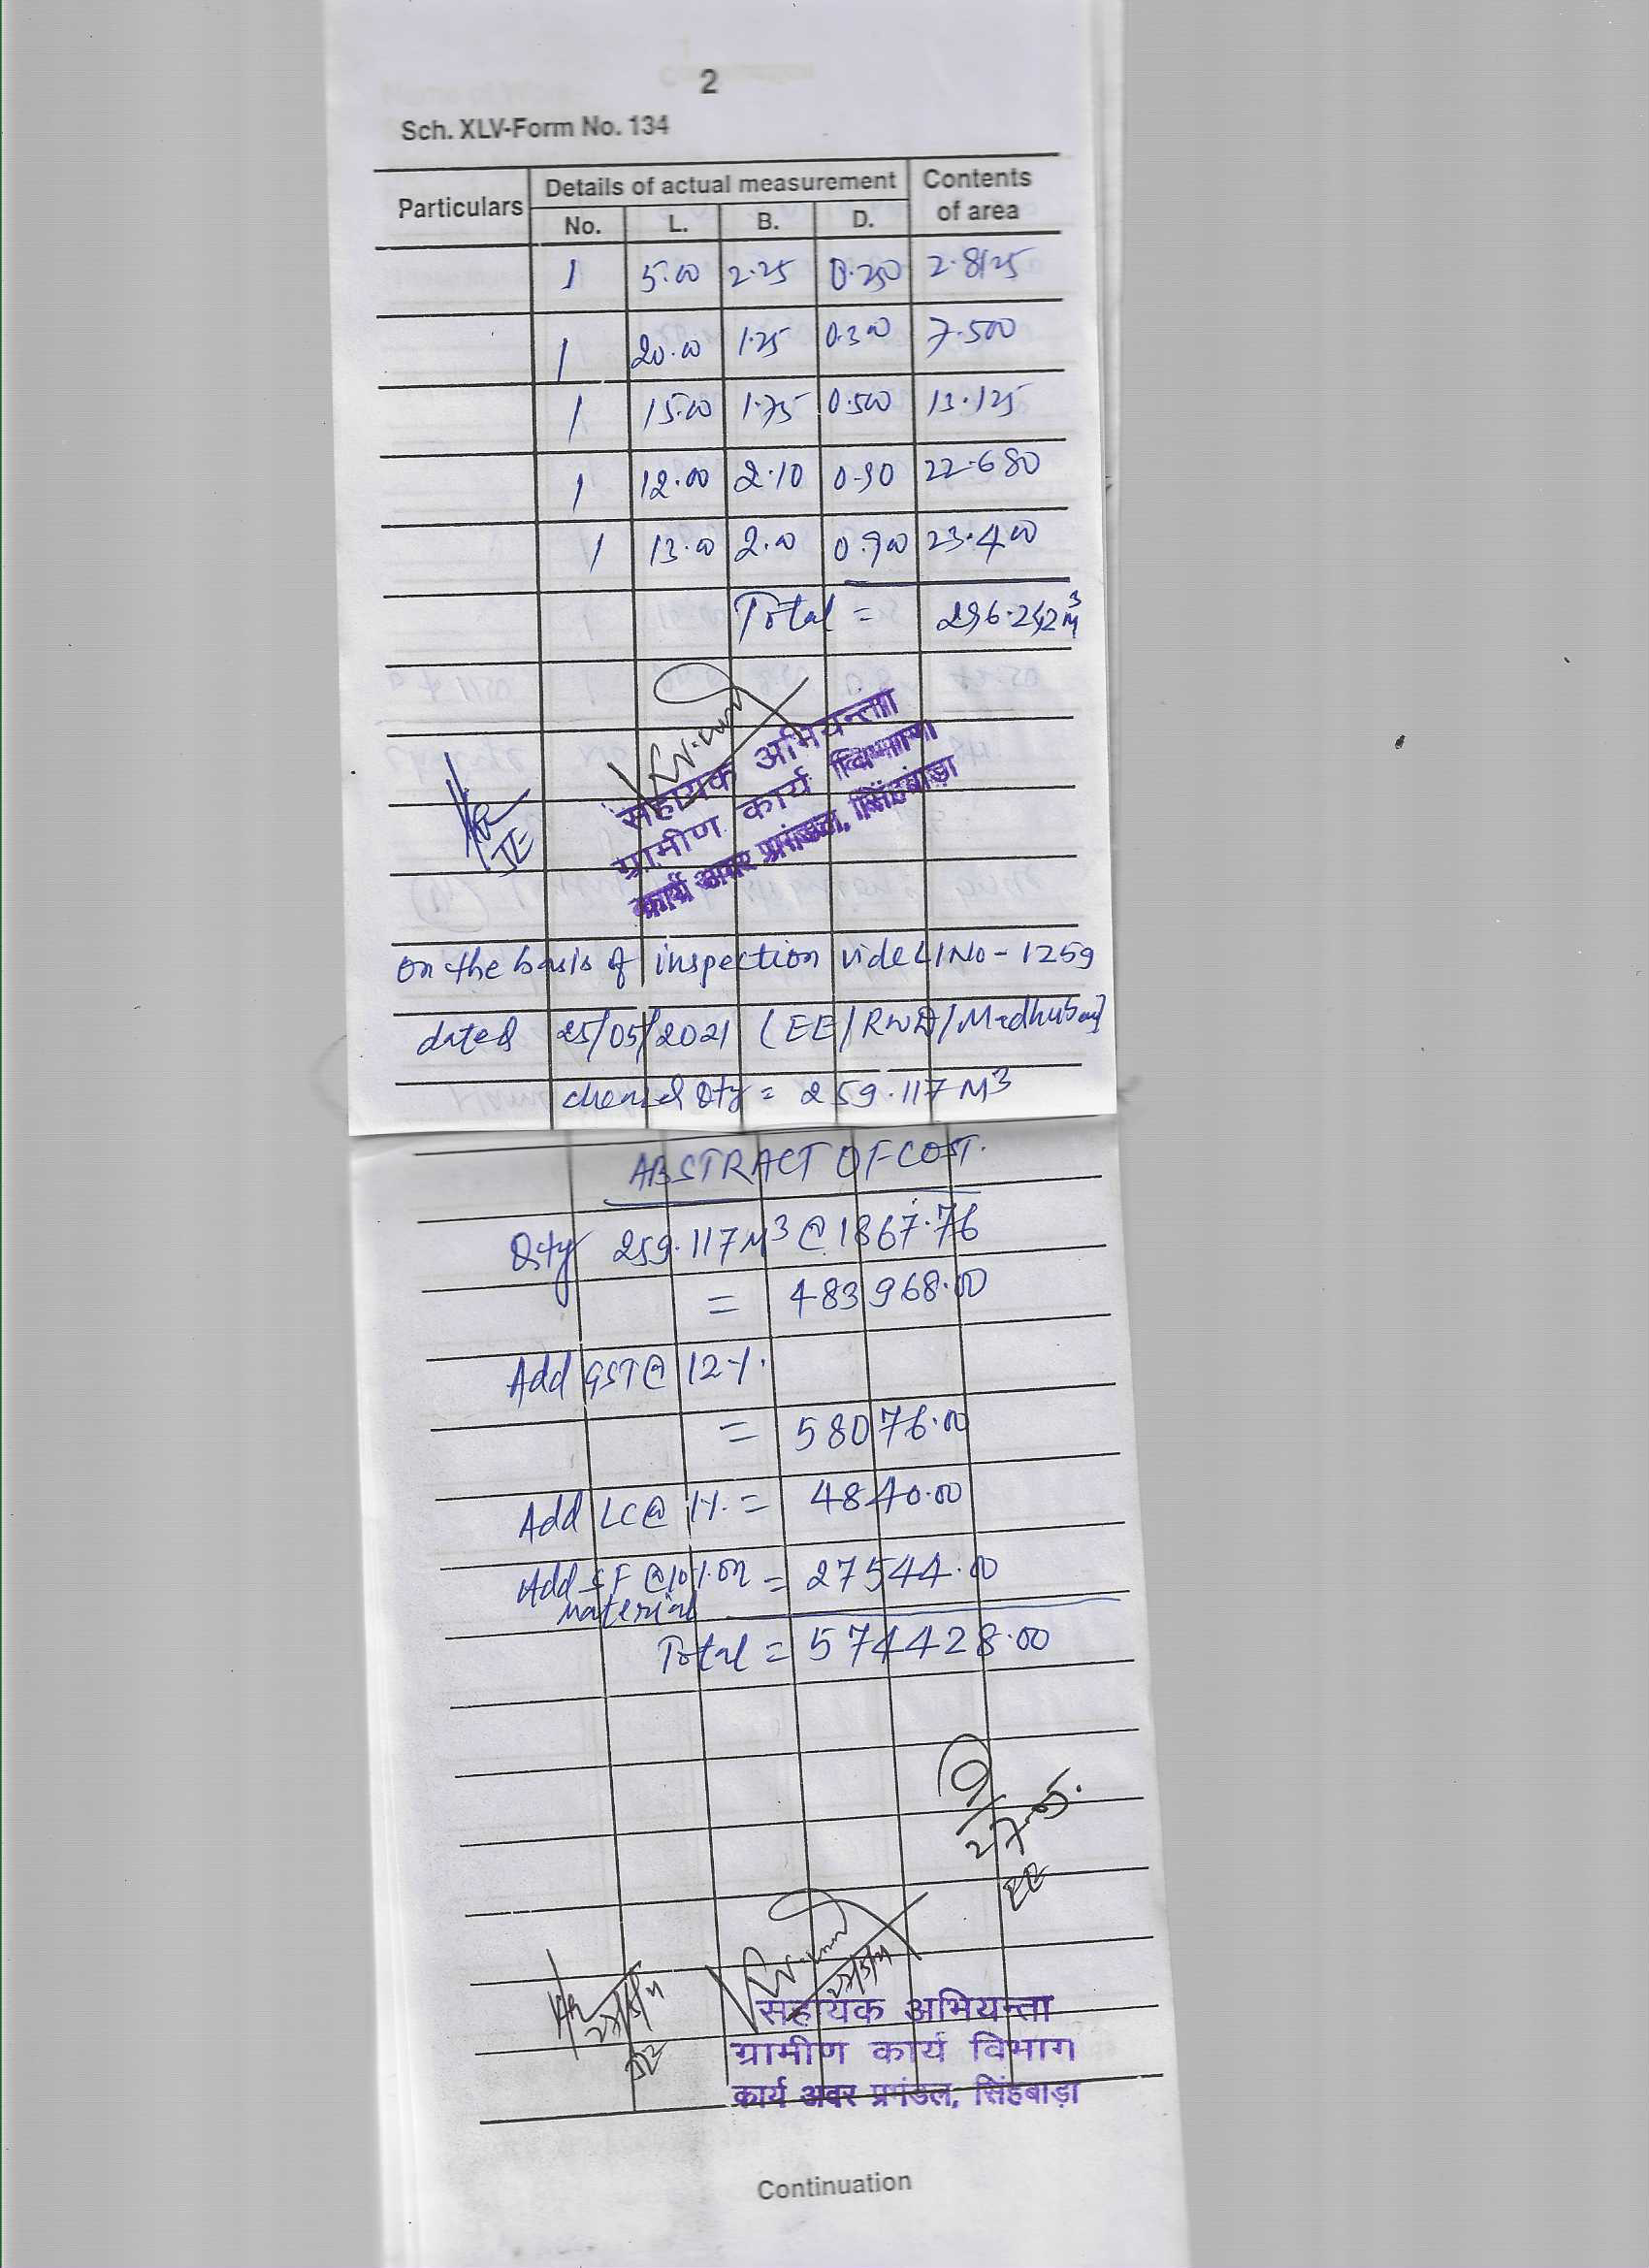 2
Sch. XLV-Form No. 134
Particulars Details of actual measurement Contents of area
No. L. B. D.
1 5.00 2.25 0.250 2.8125
1 20.00 1.25 0.300 7.500
1 15.00 1.75 0.500 13.125
1 12.00 2.10 0.90 22.680
1 13.00 2.00 0.900 23.400
Total = 296.242 M3
JE
सहायक अभियन्ता
ग्रामीण कार्य विभाग
कार्य अवर प्रमंडल, सिंहवाड़ा
on the basis of inspection vide L/No - 1259
dated 25/05/2021 (EE/RWD/Madhubani)
Qty = 259.117 M3
ABSTRACT OF COST.
Qty 259.117 M3 @ 1867.76
= 483968.00
Add GST @ 12%.
= 58076.00
Add LC @ 1%. = 4840.00
Add SF @ 10%. on = 27544.00
material
Total = 574428.00
27-05.
EE
27/5/21
27/5/21
JE
सहायक अभियन्ता
ग्रामीण कार्य विभाग
कार्य अवर प्रमंडल, सिंहबाड़ा
Continuation